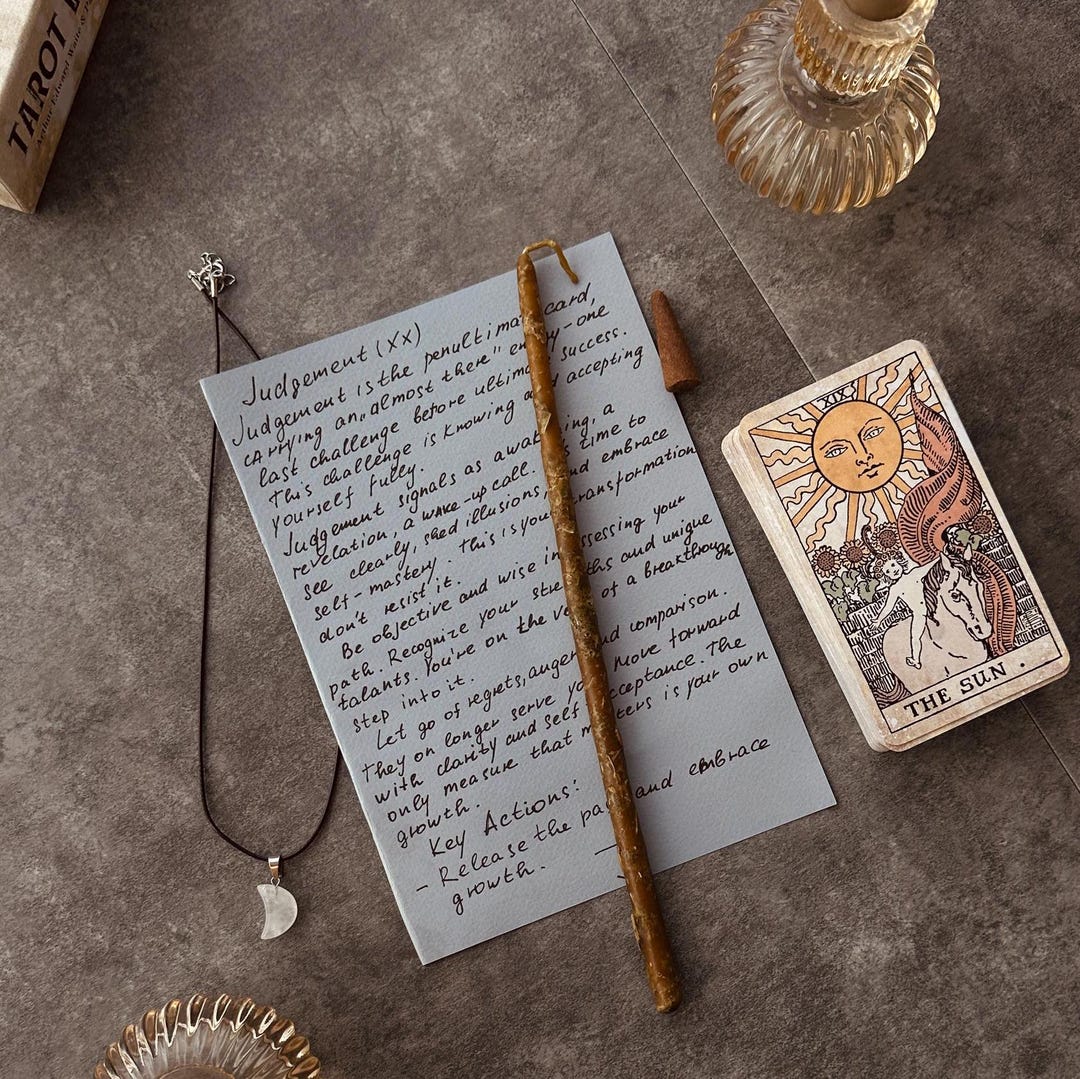 TAROT
Arthur Edward Waite &
Judgement (XX)
Judgement is the penultimate card,
carrying an „almost there" energy - one
last challenge before ultimate success.
This challenge is knowing and accepting
yourself fully.
Judgement signals as awakening, a
revelation, a wake-up call. It's time to
see clearly, shed illusions, and embrace
self-mastery. This is your transformation
don't resist it.
Be objective and wise in assessing your
path. Recognize your strengths and unique
talants. You're on the verge of a breakthrough
step into it.
Let go of regrets, anger and comparison.
They on longer serve you. Move forward
with clarity and self acceptance. The
only measure that matters is your own
growth.
Key Actions:
- Release the past and embrace
growth. -
XIX
THE SUN.